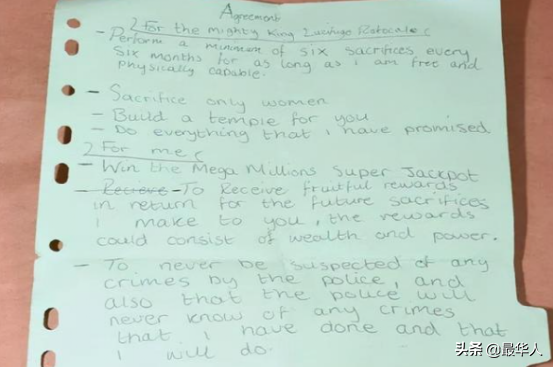 Agreement
For the mighty King Lucifuge Rofocale (
- Perform a minimum of six sacrifices every
Six months for as long as i am free and
physically capable.
- Sacrifice only women
- Build a temple for you
- Do everything that i have promised
For me (
- Win the Mega Millions Super Jackpot
- Recieve To Receive fruitful rewards
in return for the future sacrifices
I make to you, the rewards
could consist of wealth and power.
- To never be suspected of any
crimes by the police, and
also that the police will
never know of any crimes
that i have done and that
i will do.
头条 @最华人